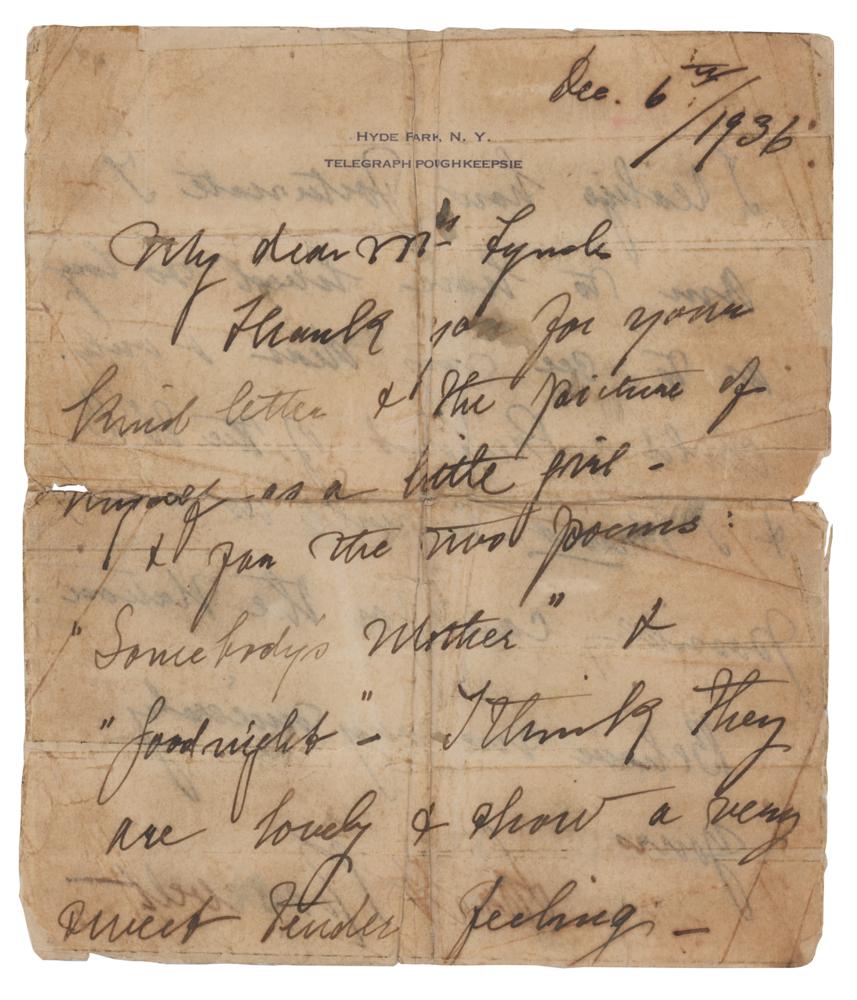 Dec. 6th/1936
HYDE PARK, N. Y.
TELEGRAPH POUGHKEEPSIE
My dear Mrs Lynch
Thank you for your
kind letter & the picture of
myself as a little girl -
& for the two poems:
"Somebody's Mother" &
"Goodnight" - I think they
are lovely & show a very
sweet tender feeling -